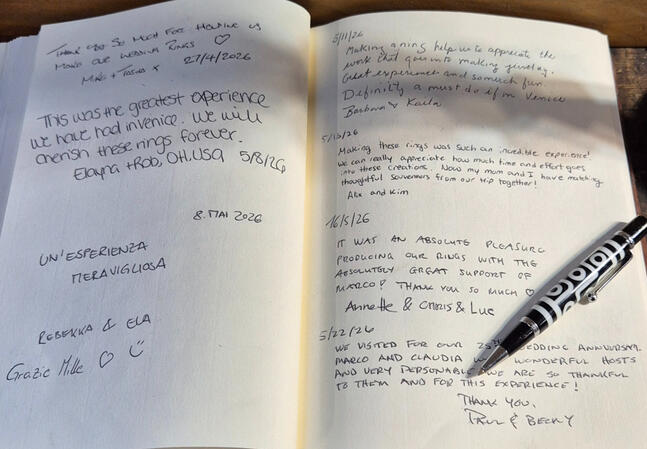 THANK YOU SO MUCH FOR HELPING US
MAKE OUR WEDDING RINGS ♡
27/4/2026
THIS WAS THE GREATEST EXPERIENCE
WE HAVE HAD IN VENICE. WE WILL
CHERISH THESE RINGS FOREVER.
Elayna + Rob, OH, USA 5/8/26
8. MAI 2026
UN'ESPERIENZA
MERAVIGLIOSA
REBEKKA & ELA
Grazie Mille ♡ ☺
5/11/26
Making a ring help us to appreciate the
work that goes into making jewelry.
Great experience and so much fun.
Definitly a must do if in Venice
Barbara Kaila
5/10/26
Making these rings was such an incredible experience!
We can really appreciate how much time and effort goes
into these creations. Now my mom and I have matching
thoughtful souvenirs from our trip together!
Alix and Kim
16/5/26
IT WAS AN ABSOLUTE PLEASURE
PRODUCING OUR RINGS WITH THE
ABSOLUTELY GREAT SUPPORT OF
MARCO! THANK YOU SO MUCH ♡
Annette & CHRIS & Luc
5/22/26
WE VISITED FOR OUR WEDDING ANNIVERSARY.
MARCO AND CLAUDIA WONDERFUL HOSTS
AND VERY PERSONABLE WE ARE SO THANKFUL
TO THEM AND FOR THIS EXPERIENCE!
THANK YOU,
PAUL & BECKY